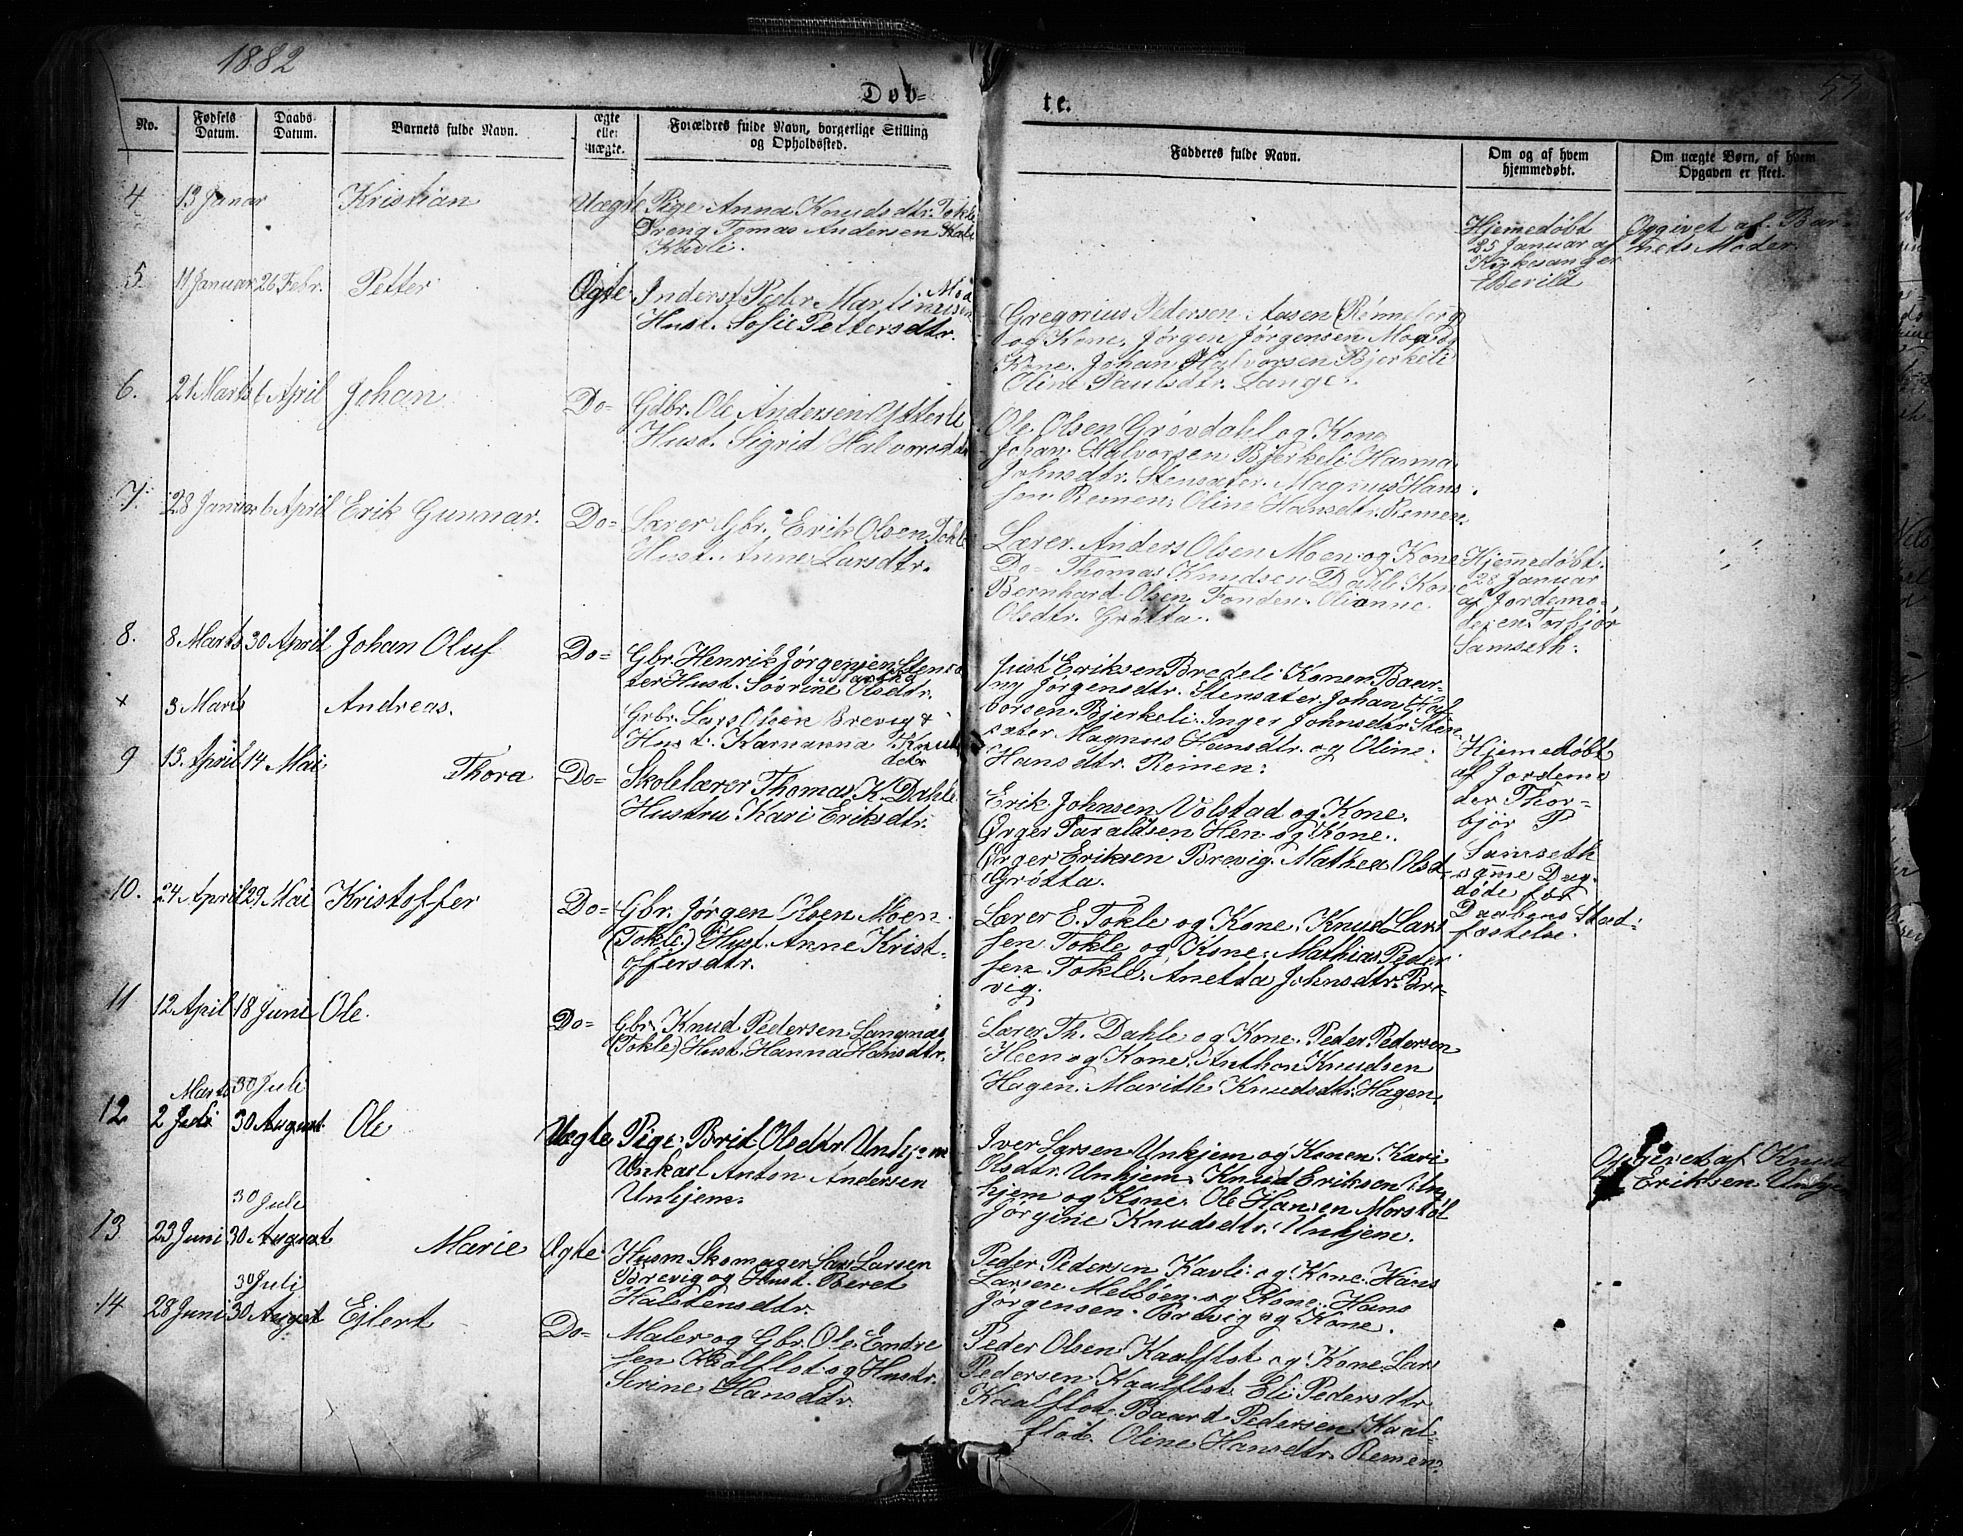 1882
53
Døb-
te.
No.
Fødsels Datum.
Daabs Datum.
Barnets fulde Navn.
ægte eller uægte.
Forældres fulde Navn, borgerlige Stilling
og Opholdssted.
Fadderes fulde Navn.
Om og af hvem
hjemmedøbt.
Om uægte Børn, af hvem
Opgaven er skeet.
4 13 Janar Kristian Uægte Pige Anna Knudsdtr. Tokle
Dreng Tomas Andersen
Kavli.
Hjemedøbt
25 Januar af
Kirkesanger
Opgivet af Bar-
nets Moder.
5. 11 Januar 26 Febr. Petter Ægte Inderst Peder Martinusen
Hust. Sofie Pettersdtr.
Gregorius Pedersen Aasen (Rønneberg)
og Kone, Jørgen Jørgensen Moa og
Kone, Johan Halvorsen Bjerkeli
Oline Paulsdtr. Lange.
6. 21 Marts 6 April Johan Do= Gdbr. Ole Andersen Ytterli
Hust. Sigrid Halvorsdtr
Ole Olsen Grøvdahl og Kone
Johan Halvorsen Bjerkeli Hanna
Johnsdtr. Stensæter. Magnus Hans
sen Remen. Oline Hansdtr. Remen.
7. 28 Januar 6 April Erik Gunnar. Do= Lærer Gbr. Erik Olsen Tokle
Hust. Anne Larsdtr.
Lærer Anders Olsen Moen og Kone
Do= Thomas Knudsen Dahle Kone
Bernhard Olsen Fonden. Olianne
Olsdtr. Grøtta.
Hjemedøbt.
28 Januar
af Jordemo-
deren Torbjør
Samseth.
8. 8 Marts 30 April Johan Oluf Do= Gbr. Henrik Jørgensen Stensæ
ter Hust. Sørine Olsdtr.
Just Eriksen Bredeli Konen Baar-
ny Jørgensdtr. Stensæter Johan Hal
vorsen Bjerkeli Inger Johnsdtr. Sten
sæter Magnus Hansdtr. og Oline
Hansdtr. Remen:
x 3 Marts Andreas. Grbr. Lars Olsen Brevig &
Hust. Karnanna Knuds
dtr
9 13. April 14 Mai Thora Do= Skolelærer Thomas K. Dahle
Hustru Kari Eriksdtr.
Erik Johnsen Volstad og Kone.
Ørger Taraldsen Hen og Kone.
Ørger Eriksen Brevig. Mathea Olsd-
Grøtta.
Hjemedøbt
af Jordemo
der Thor-
bjør P
Samseth
same Dag.
døde før
Daabens Stad-
fæstelse.
10. 24 April 29 Mai Kristoffer Do= Gbr. Jørgen Olsen Moen
(Tokle) Hust. Anne Krist-
offersdtr.
Lærer E. Tokle og Kone. Knud Lars
sen Tokle og Kone. Mathias Peder
sen Tokle. Anetta Johnsdtr. Bre-
vig.
11 12 April 18 Juni Ole. Do= Gbr. Knud Pedersen Langnæs
(Tokle) Hust. Hanna Hansdtr.
Lærer Th. Dahle og Kone. Peder Pedersen
Heen og Kone. Anthon Knudsen
Hagen. Marith Knudsdtr. Hagen.
Marts 30 Juli
12 2 Juli 30 August Ole Uægte Pige Brit Olsdtr Unhjem
Unkarl Anton Andersen
Unhjem.
Iver Larsen Unhjem og Konen Kari
Olsdtr. Unhjem Knud Eriksen Un
hjem og Kone. Ole Hansen Morstøl
Jørgine Knudsdtr. Unhjem.
Opgivet af Knud
Eriksen
30 Juli
13 23 Juni 30 August Marie Ægte Husm Skomager Lars Larsen
Brevig og Hust. Beret
Halstensdtr.
Peder Pedersen Kavli og Kone. Hans
Larsen Melbøen og Kone. Hans
Jørgensen Brevig og Kone.
30 Juli
14 28 Juni 30 August Ejlert Do= Maler og Gbr. Ole Endre
sen Kaalflot og Hustr.
Serine Hansdtr
Peder Olsen Kaalflot og Kone Lars
Pedersen Kaalflot Eli Pedersdtr
Kaalflot. Baard Pedersen Kaal-
flot. Oline Hansdtr. Remen.